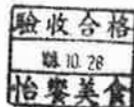 驗收合格
108.10.28
怡饗美食